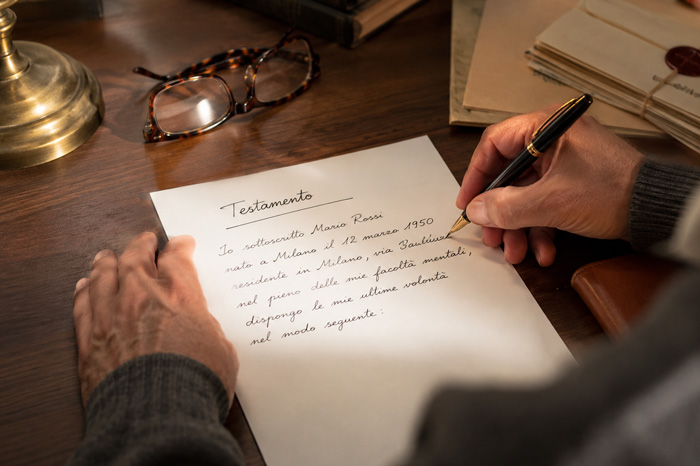 Testamento
Io sottoscritto Mario Rossi
nato a Milano il 12 marzo 1950
residente in Milano, via
nel pieno delle mie facoltà mentali,
dispongo le mie ultime volontà
nel modo seguente: